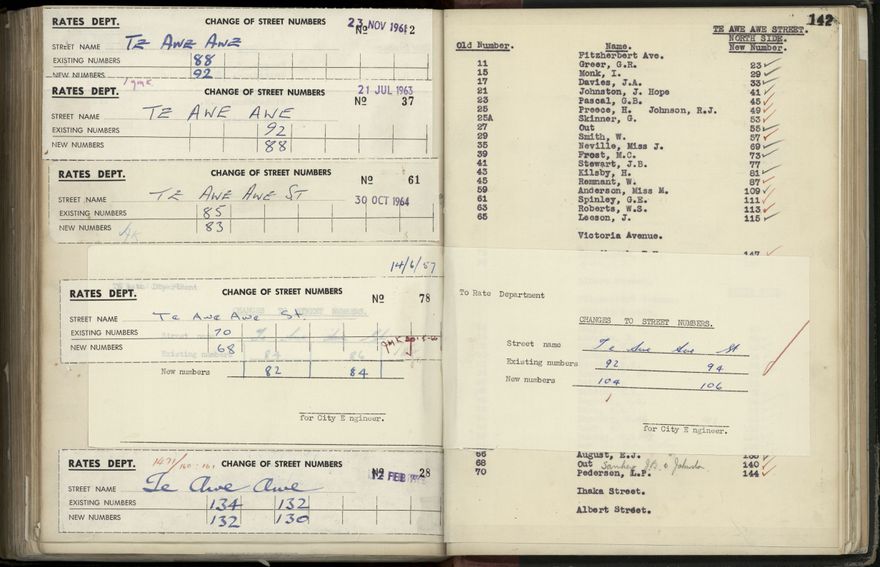 RATES DEPT. CHANGE OF STREET NUMBERS 23 NOV 1961
No 2
STREET NAME TE AWE AWE
EXISTING NUMBERS 88
NEW NUMBERS 92
RATES DEPT. CHANGE OF STREET NUMBERS 21 JUL 1963
No 37
STREET NAME TE AWE AWE
EXISTING NUMBERS 92
NEW NUMBERS 88
RATES DEPT. CHANGE OF STREET NUMBERS No 61
STREET NAME TE AWE AWE ST 30 OCT 1964
EXISTING NUMBERS 85
NEW NUMBERS 83
14/6/57
RATES DEPT. CHANGE OF STREET NUMBERS No 78
STREET NAME Te Awe Awe St.
EXISTING NUMBERS 70
NEW NUMBERS 68
New numbers 82 84
for City E ngineer.
RATES DEPT. CHANGE OF STREET NUMBERS No 28
12 FEB
STREET NAME Te Awe Awe
EXISTING NUMBERS 134 132
NEW NUMBERS 132 130
142
TE AWE AWE STREET.
NORTH SIDE.
Old Number. Name. New Number.
Fitzherbert Ave.
11 Greer, G.R. 23
15 Monk, I. 29
17 Davies, J.A. 33
21 Johnston, J. Hope 41
23 Pascal, G.B. 45
25 Preece, H. Johnson, R.J. 49
25A Skinner, G. 53
27 Out 55
29 Smith, W. 57
35 Neville, Miss J. 69
39 Frost, M.C. 73
41 Stewart, J.B. 77
43 Kilsby, H. 81
45 Remnant, W. 87
59 Anderson, Miss M. 109
61 Spinley, G.E. 111
63 Roberts, W.S. 113
65 Leeson, J. 115
Victoria Avenue.
147
To Rate Department
CHANGES TO STREET NUMBERS.
Street name Te Awe Awe St
Existing numbers 92 94
New numbers 104 106
for City E ngineer.
66 August, E.J.
68 Out 140
70 Pedersen, L.P. 144
Ihaka Street.
Albert Street.